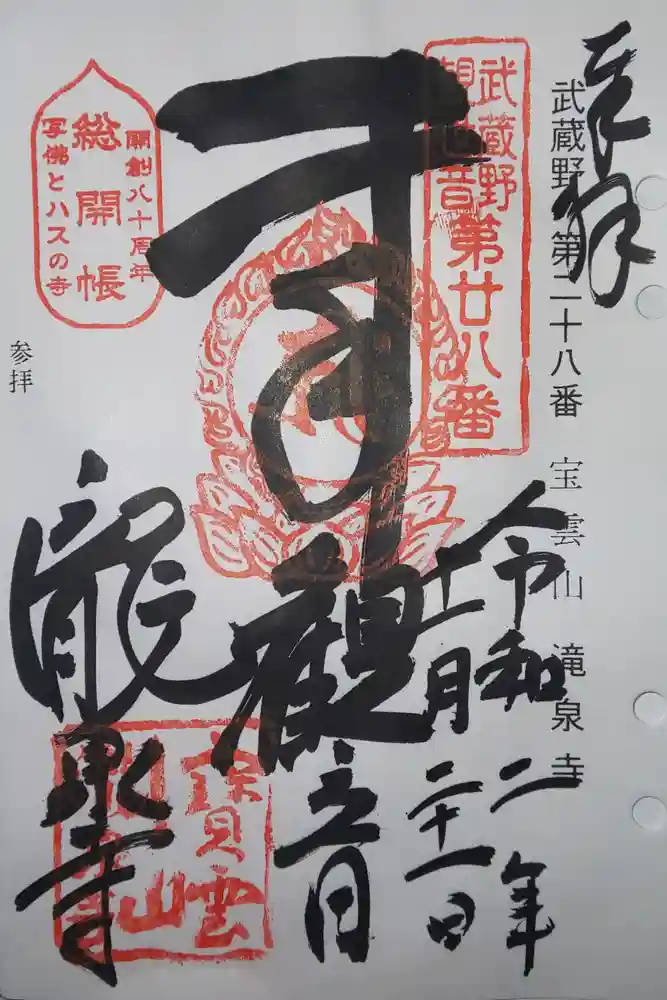 奉拝
武蔵野第二十八番 宝雲山 滝泉寺
令和二年
十一月二十一日
武蔵野
観世音
第廿八番
觀音
開創八十周年
総開帳
写佛とハスの寺
参拝
龍泉寺
寶雲
山